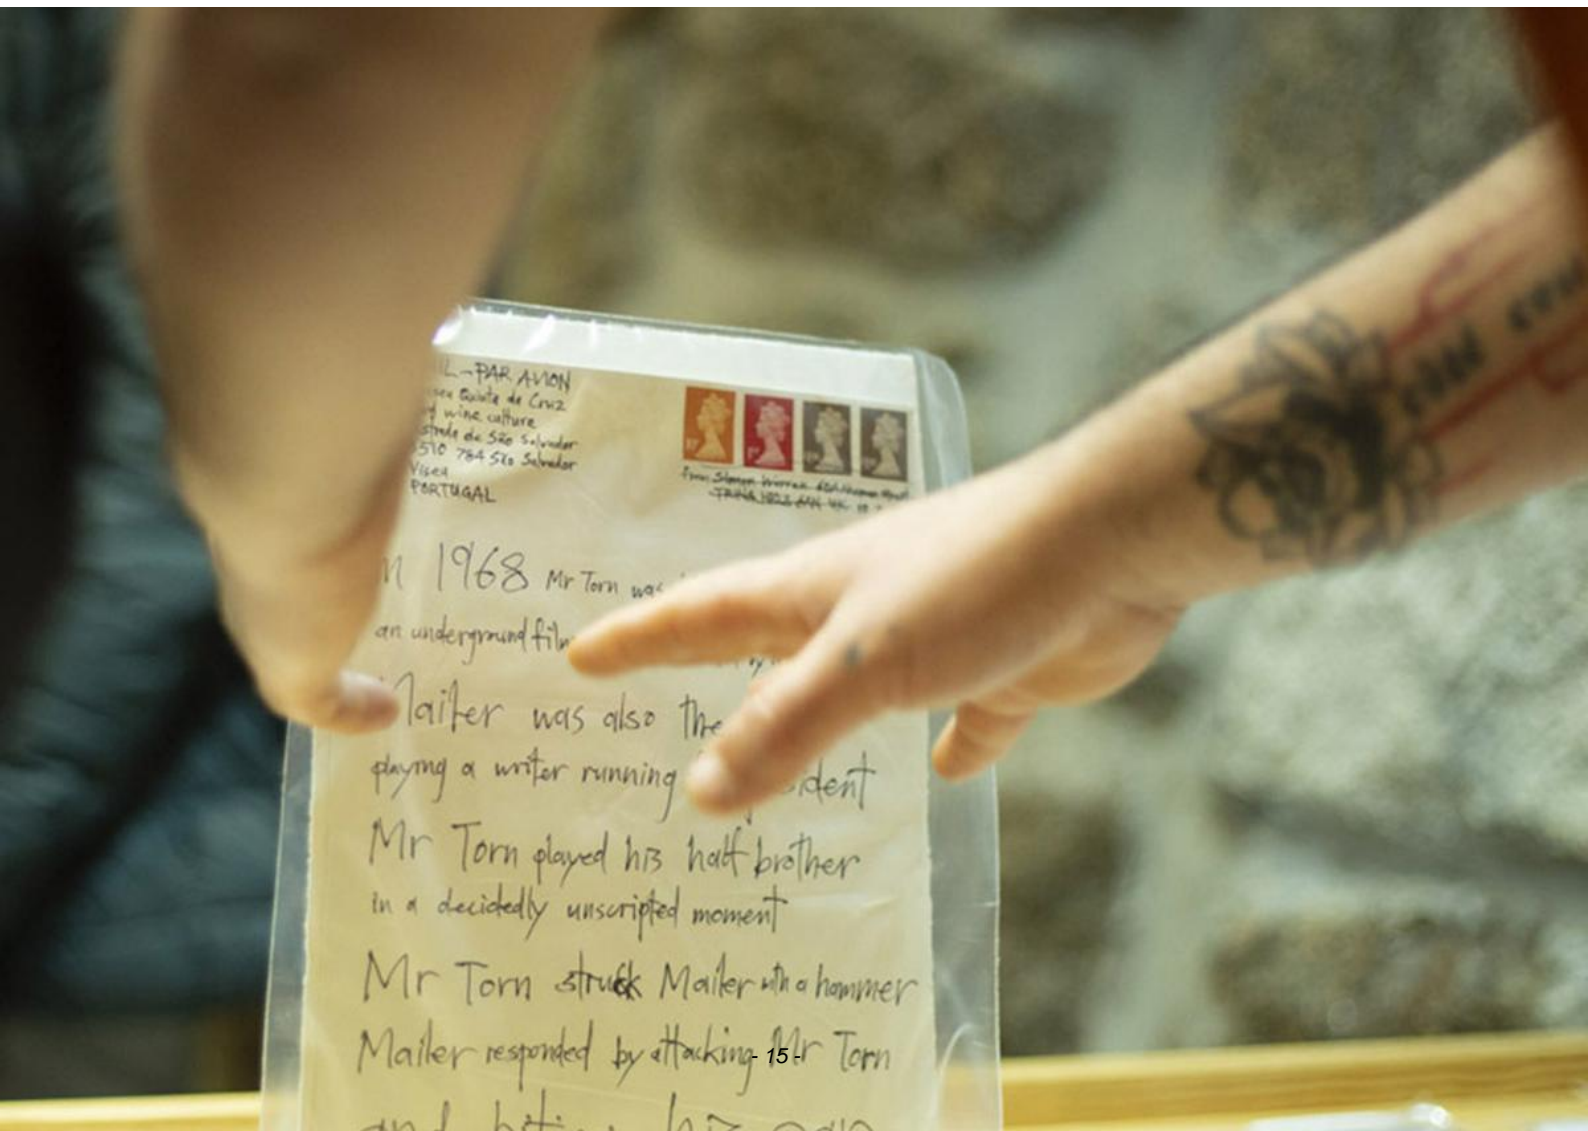 L-PAR AVION
Quinta de Cruz
wine culture
de São Salvador
510 784 São Salvador
Viseu
PORTUGAL
From: Simon Warren
TRING
1968 Mr Torn was
an underground film
Mailer was also the
playing a writer running
Mr Torn played his half brother
in a decidedly unscripted moment
Mr Torn struck Mailer with a hammer
Mailer responded by attacking Mr Torn
and biting his ear
- 15 -